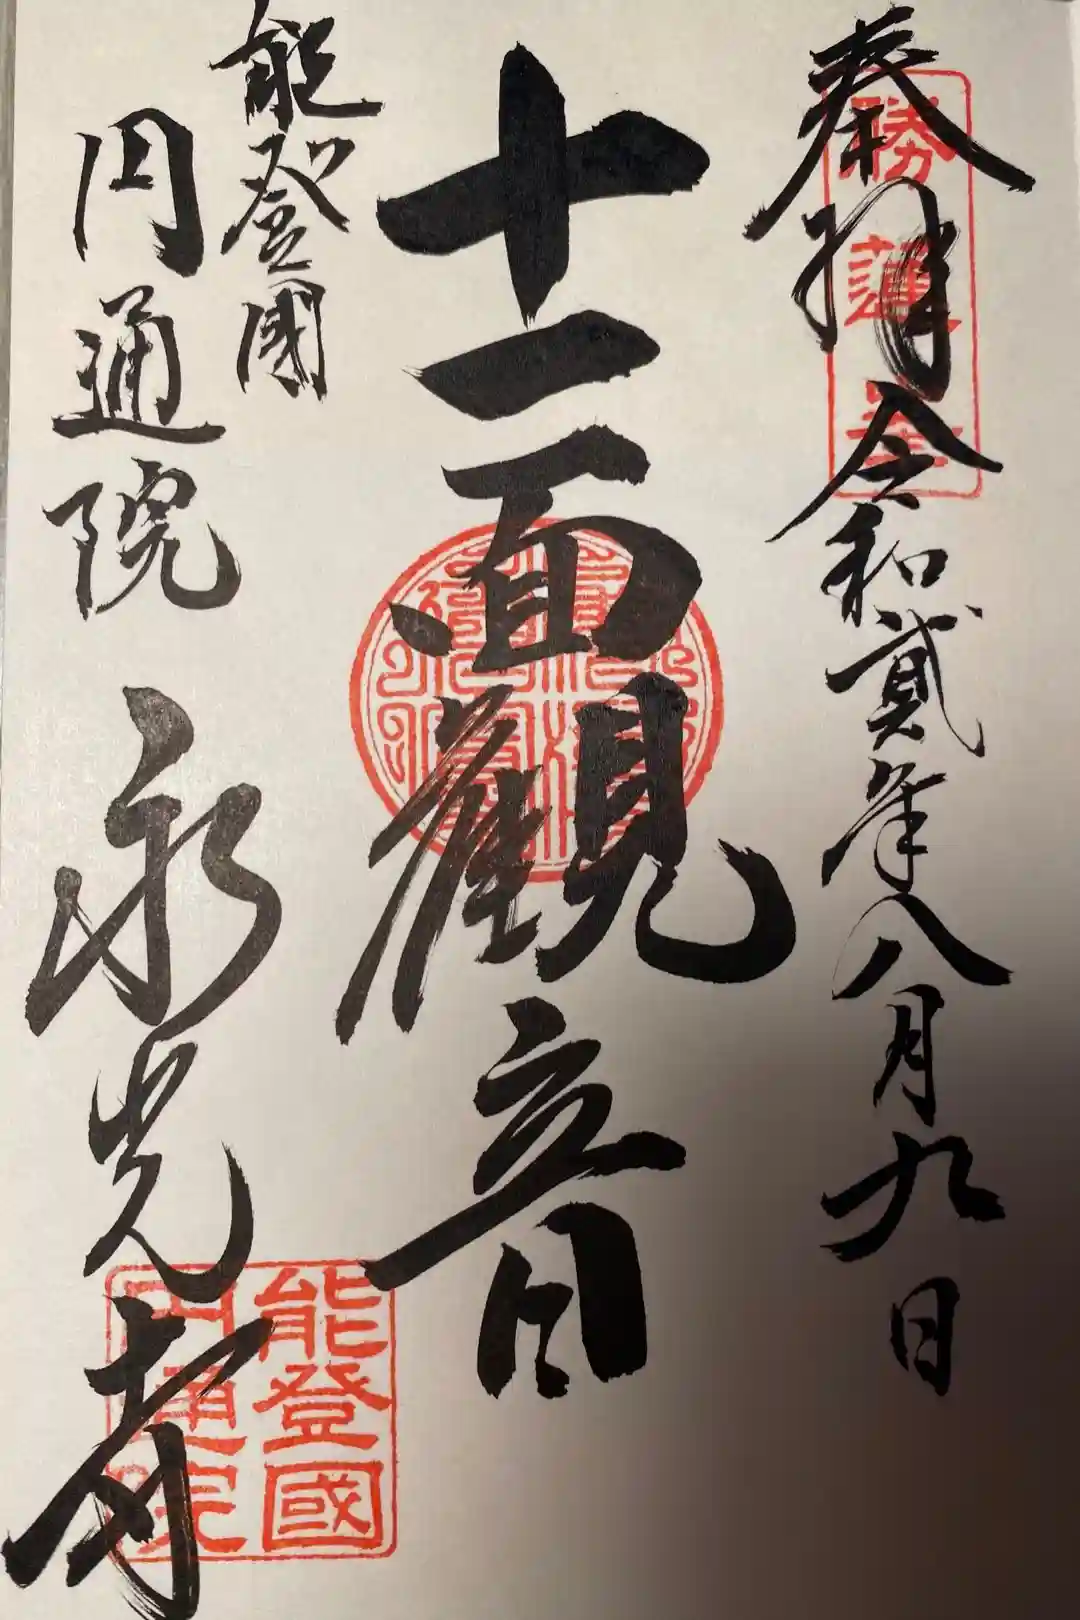 奉拝 令和貳年八月九日
十一面観音
能登國
円通院 永光寺
能登國
円通院